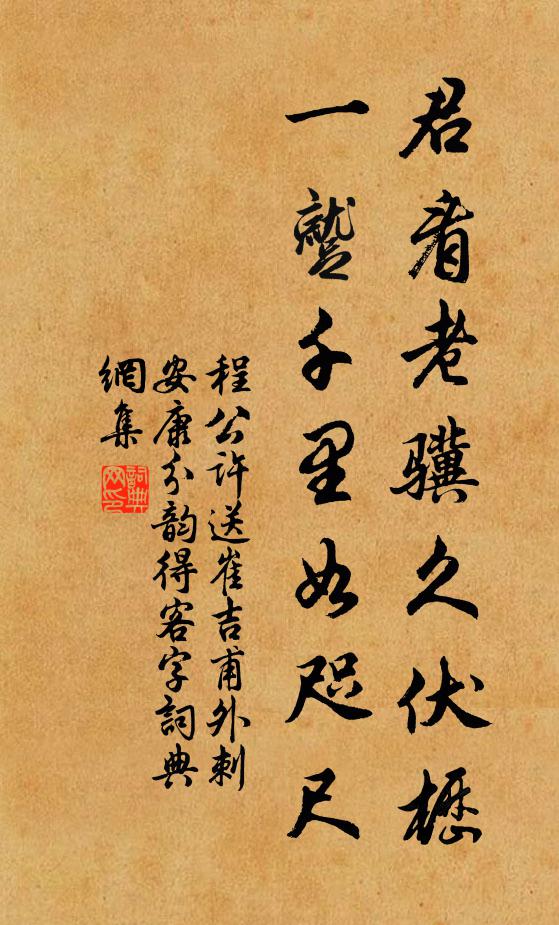 君看老骥久伏櫪
一蹵千里如咫尺
程公许送崔吉甫外刺
安康分韵得客字詞典
網集
詞典
网印